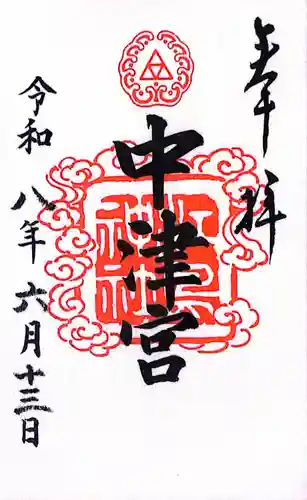 奉拝
中津宮
令和八年六月十三日